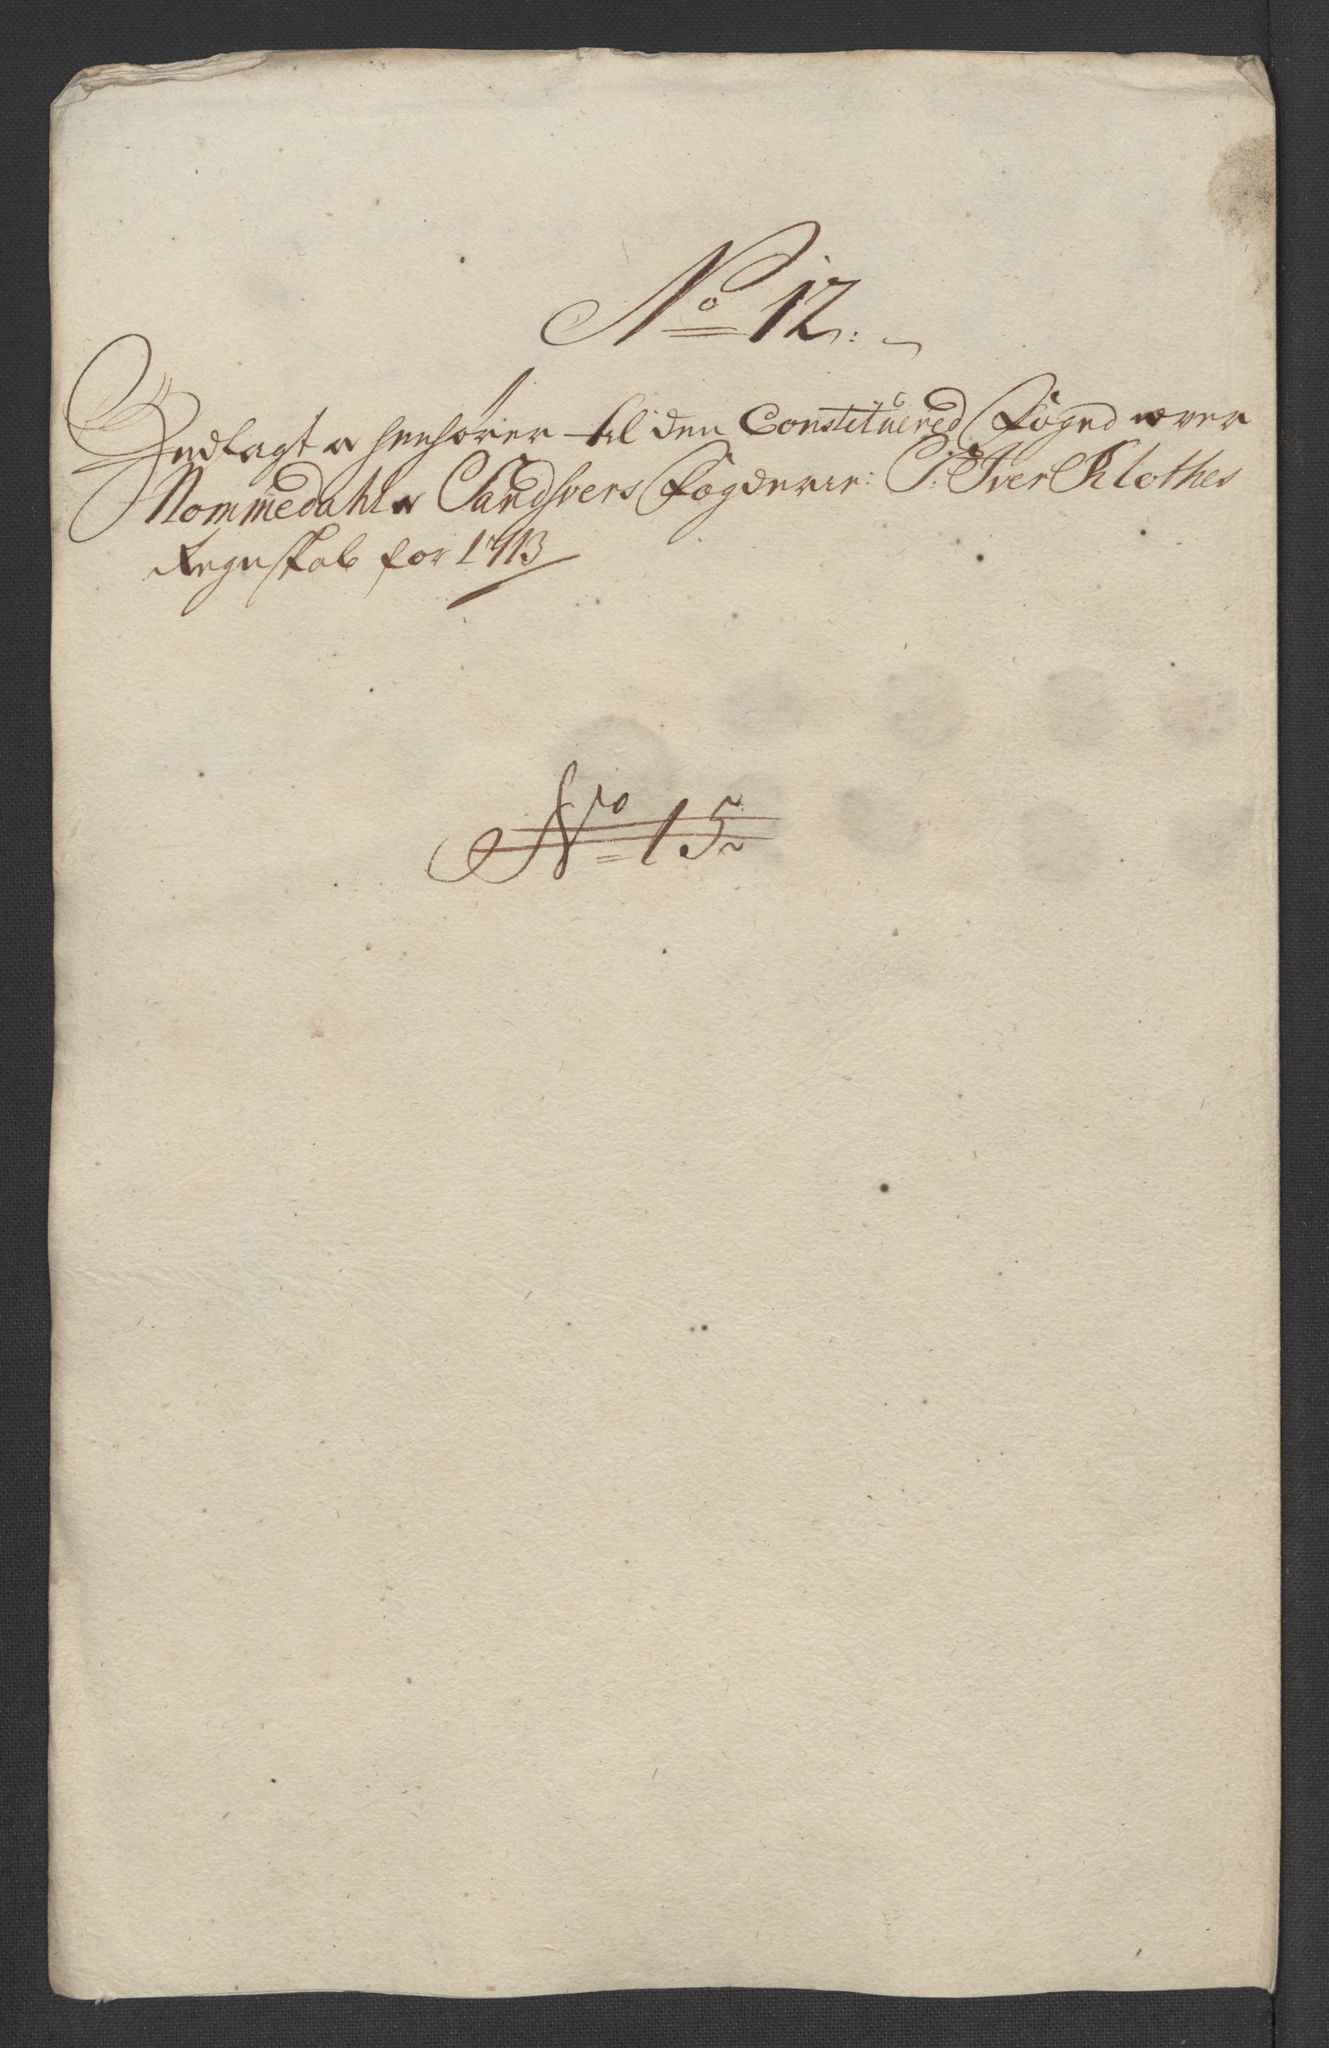 No 12.
Indlagt & henhører til den Constituered Foged over
Nommedahl & Sandsvers Fogderie: S: Iver Klothes
Regnskab for 1713
No 15